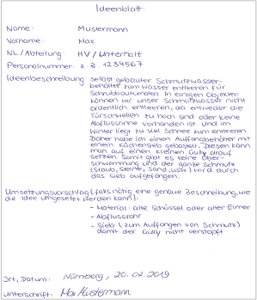 Ideenblatt
Name: Mustermann
Vorname: Max
NL / Abteilung: HV / Unterhalt
Personalnummer: z.B. 1234567
Ideenbeschreibung: selbst gebauter Schmutzwasser-
behälter zum Wasser entleeren für
Schrubbautomaten. In einigen Objekten
können wir unser Schmutzwasser nicht
ordentlich entleeren, da entweder die
Türschwellen zu hoch sind oder keine
Abflussrinne vorhanden ist. Und im
Winter liegt zu viel Schnee zum entleeren.
Daher habe ich einen Auffangbehälter mit
einem Küchensieb gebastelt. Diesen kann
man auf einen kleinen Gully drauf
setzen. Somit gibt es keine Über-
schwemmung und der ganze Schmutz
(Staub, Steine, Sand usw.) wird durch
das Sieb aufgefangen.
Umsetzungsvorschlag (falls nötig eine genaue Beschreibung, wie
die Idee umgesetzt werden kann):
- Material: alte Schüssel oder alter Eimer
- Abflussrohr
- Sieb (zum Auffangen von Schmutz)
damit der Gully nicht verstopft
Ort, Datum: Nürnberg, 20.02.2019
Unterschrift: Max Mustermann